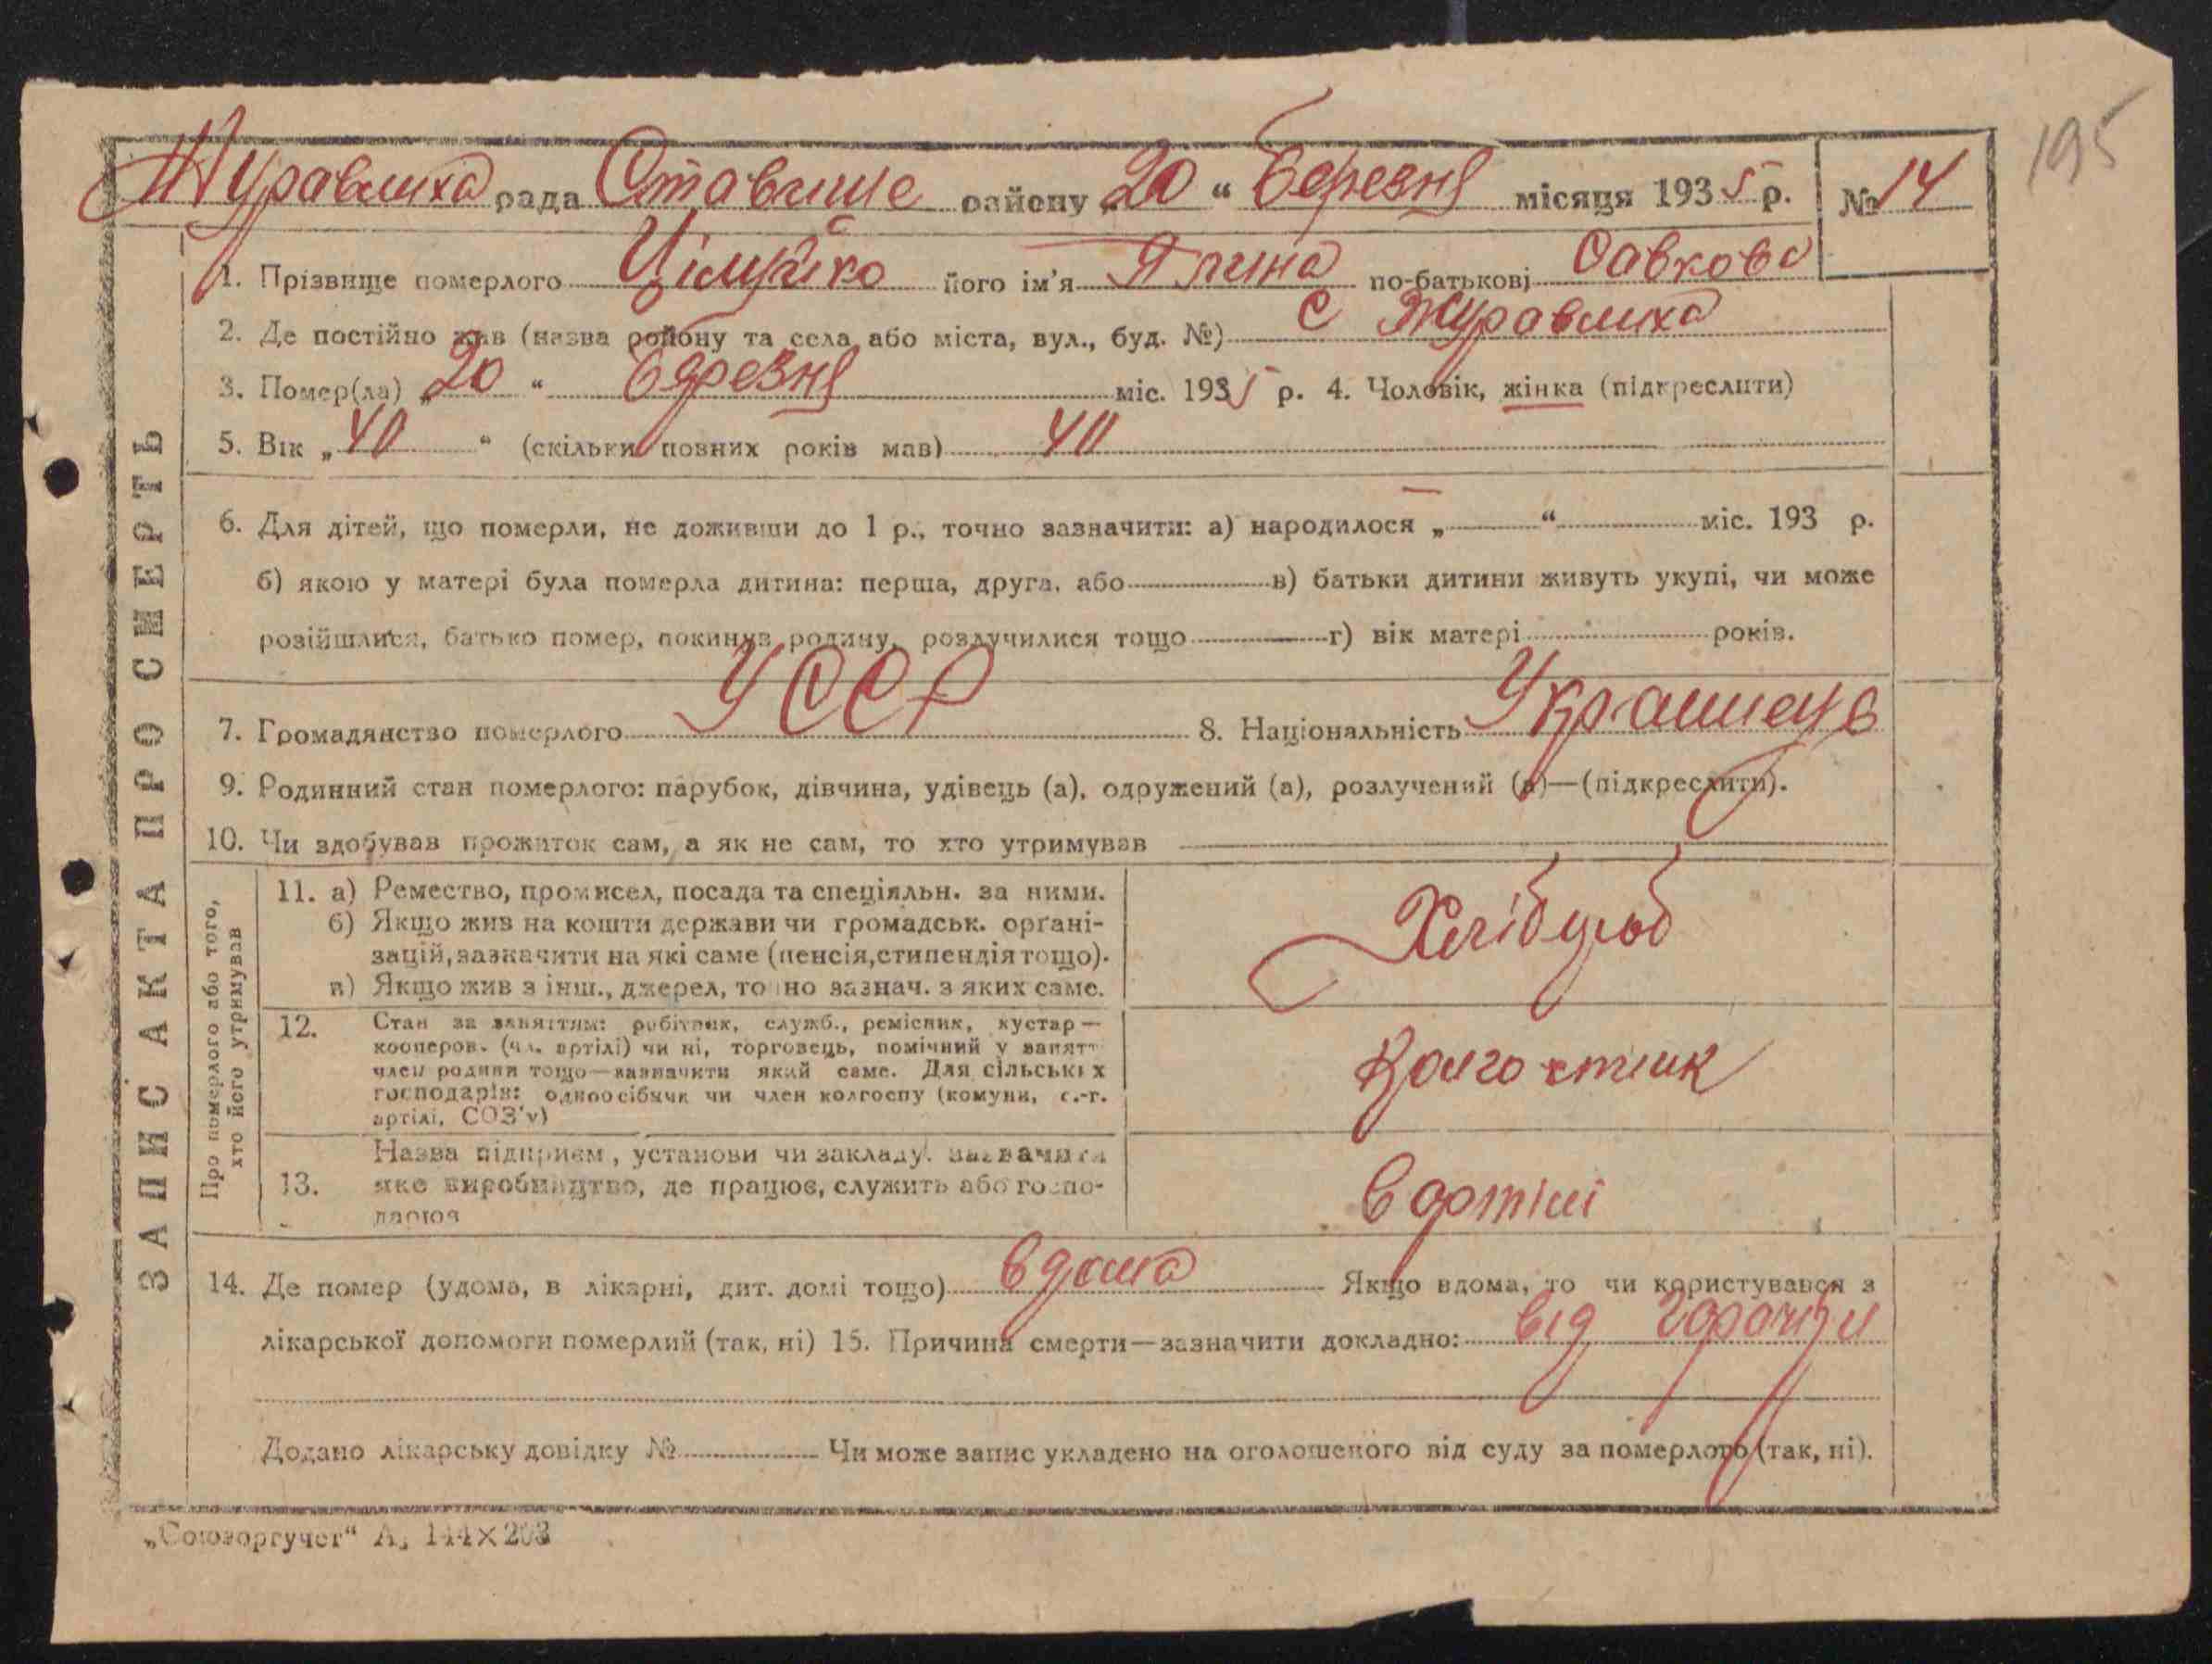 195
Журавлиха рада Ставище району „20“ Березня місяця 1935 р. № 14
1. Прізвище померлого його ім'я Ярина по-батькові Савкова
2. Де постійно жив (назва району та села або міста, вул., буд. №) с Журавлиха
3. Помер(ла) „20“ березня міс. 1935 р. 4. Чоловік, жінка (підкреслити)
5. Вік „40“ (скільки повних років мав) 40
6. Для дітей, що померли, не доживши до 1 р., точно зазначити: а) народилося „ “ міс. 193 р.
б) якою у матері була померла дитина: перша, друга, або в) батьки дитини живуть укупі, чи може
розійшлися, батько помер, покинув родину, розлучилися тощо г) вік матері років.
7. Громадянство померлого УССР 8. Національність
9. Родинний стан померлого: парубок, дівчина, удівець (а), одружений (а), розлучений (а)—(підкреслити).
10. Чи здобував прожиток сам, а як не сам, то хто утримував
ЗАПИС АКТА ПРО СМЕРТЬ
Про померлого або того,
хто його утримував
11. а) Ремество, промисел, посада та спеціяльн. за ними.
б) Якщо жив на кошти держави чи громадськ. орґані-
зацій, зазначити на які саме (пенсія, стипендія тощо).
в) Якщо жив з інш., джерел, точно зазнач. з яких саме.
Хлібороб
12. Стан за заняттям: робітник, служб., ремісник, кустар—
кооперов. (чл. артілі) чи ні, торговець, помічний у занятт
член родини тощо—зазначити який саме. Для сільських
господарів: одноосібник чи член колгоспу (комуни, с.-г.
артілі, СОЗ'у)
13. Назва підприєм, установи чи закладу. зазначити
яке виробництво, де працює, служить або госпо-
дарює
в артілі
14. Де помер (удома, в лікарні, дит. домі тощо) вдома Якщо вдома, то чи користувався з
лікарської допомоги померлий (так, ні) 15. Причина смерти—зазначити докладно: від горячки
Додано лікарську довідку № Чи може запис укладено на оголошеного від суду за померлого (так, ні).
„Союзоргучет“ А, 144×203